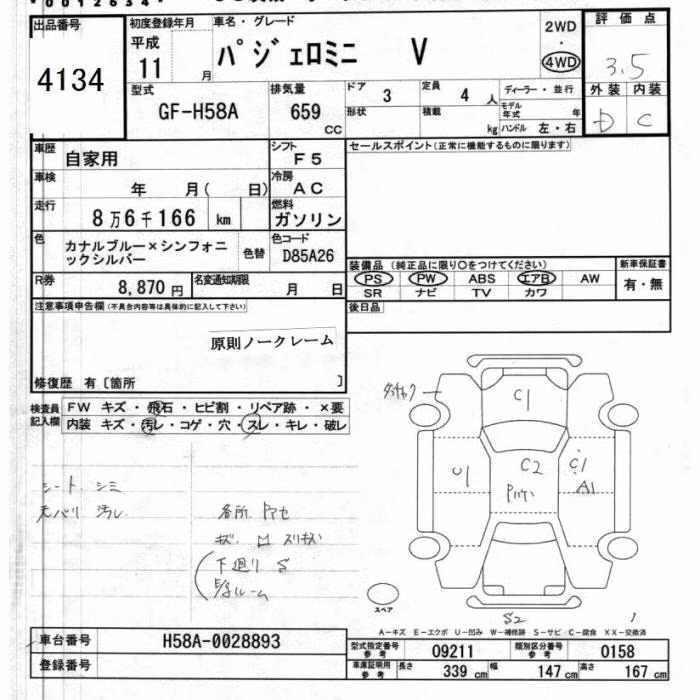 出品番号
4134
初度登録年月
平成
11 月
車名・グレード
パジェロミニ V
2WD
・
4WD
評価点
3.5
外装 内装
D C
型式
GF-H58A
排気量
659
cc
ドア
3
定員
4 人
形状
積載
kg
ディーラー・並行
モデル年式 年
ハンドル 左・右
車歴
自家用
シフト
F5
車検
年 月( 日)
冷房
AC
走行
8万6千166 km
燃料
ガソリン
色
カナルブルー×シンフォニ
ックシルバー
色替
色コード
D85A26
R券
8,870 円
名変通知期限
月 日
セールスポイント(正常に機能するものに限ります)
装備品 (純正品に限り○をつけてください)
PS PW ABS エアB AW
SR ナビ TV カワ
新車保証書
有・無
後日品
注意事項申告欄(不具合内容等は具体的に記入して下さい)
原則ノークレーム
修復歴 有〔箇所 〕
検査員
記入欄
FW キズ・飛石・ヒビ割・リペア跡・×要
内装 キズ・汚レ・コゲ・穴・スレ・キレ・破レ
シート シミ
天バリ 汚レ
各所
キズ
下廻り S
ルーム
C1
U1
C2
C1
A1
スペア
S2
1
A-キズ E-エクボ U-凹み W-補修跡 S-サビ C-腐食 XX-交換済
車台番号
H58A-0028893
登録番号
型式指定番号
参考
09211
類別区分番号
参考
0158
車庫証明用
参考
長さ 339 cm 幅 147 cm 高さ 167 cm